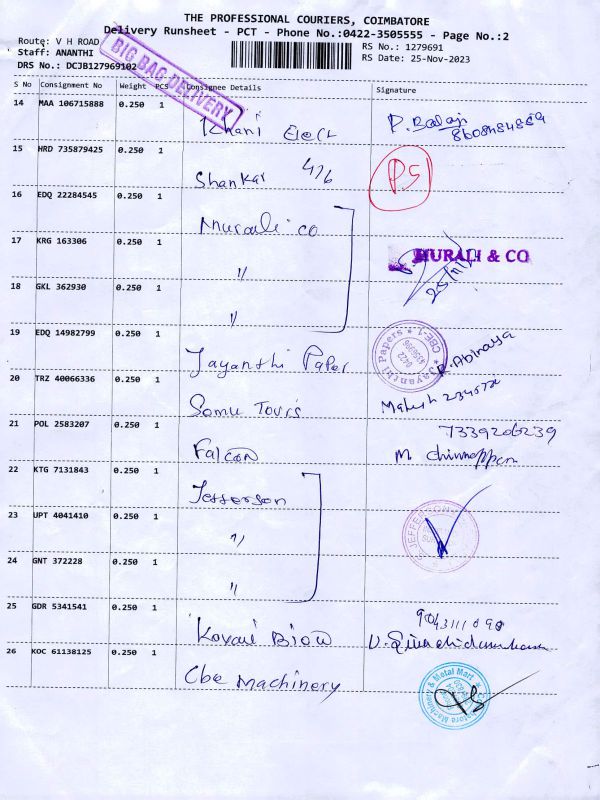 THE PROFESSIONAL COURIERS, COIMBATORE
Delivery Runsheet - PCT - Phone No.:0422-3505555 - Page No.:2
Route: V H ROAD
RS No.: 1279691
Staff: ANANTHI
RS Date: 25-Nov-2023
DRS No.: DCJB127969102
BIG BAG DELIVERY
S No Consignment No Weight PCS Consignee Details Signature
14 MAA 106715888 0.250 1 Khani Elect P. Balaji
15 HRD 735879425 0.250 1 Shankar 476 P.S
16 EDQ 22284545 0.250 1 Murali co
17 KRG 163306 0.250 1 " MURALI & CO
18 GKL 362930 0.250 1 "
19 EDQ 14982799 0.250 1 Jayanthi Paper R. Abinaya
Jayanthi Papers * CBE-1
0422
20 TRZ 40066336 0.250 1 Somu Tours Mahesh
21 POL 2583207 0.250 1 Falcon 7339206239
M
22 KTG 7131843 0.250 1 Jefferson
23 UPT 4041410 0.250 1 "
24 GNT 372228 0.250 1 "
25 GDR 5341541 0.250 1 Kovai
26 KOC 61138125 0.250 1 Cbe Machinery
Coimbatore Machinery & Metal Mart